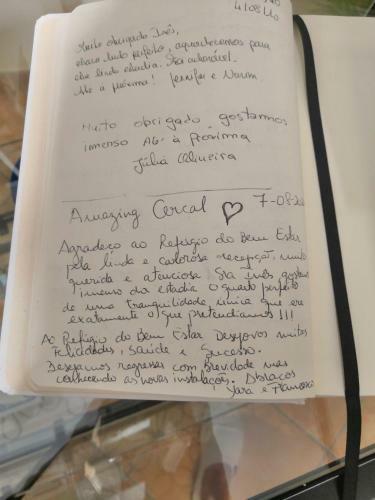 4/08/20
Muito obrigado Inês,
estava tudo perfeito, agradecemos pela
linda estadia. Sra adorável.
Até a próxima! Jennifer e
Muito obrigado, gostamos
imenso Até à Próxima
Júlia Oliveira
Amazing Cercal ♡ 7-08-20
Agradeço ao Refúgio do Bem Estar
pela linda e calorosa recepção, muito
querida e atenciosa Sra Inês, gostei
imenso da estadia o quarto perfeito
de uma tranquilidade, única que era
exatamente o que pretendíamos!!!
Ao Refúgio do Bem Estar Desejovos muitas
Felicidades, Saúde e Sucesso.
Desejamos regressar com brevidade mas
conhecendo as novas instalações. Abraços
Yara e Francisco